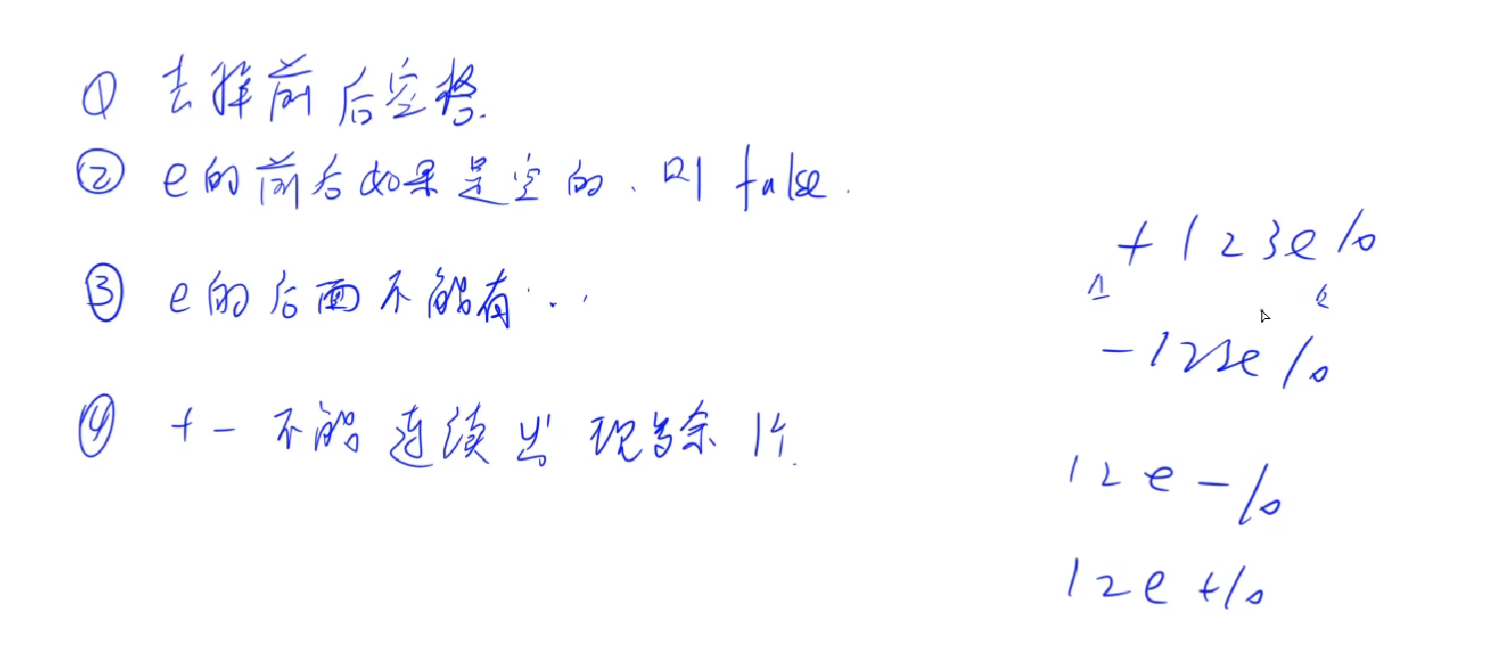 ① 去掉前后空格.
② e的前后如果是空的、则 false.
③ e的后面不能有 ·
④ + - 不能连续出现多余 1个.
+123e10
-123e10
12e-10
12e+10